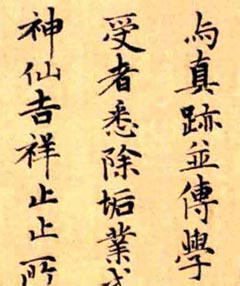 與真跡並傳學
受者悉除垢業
神仙吉祥止止所